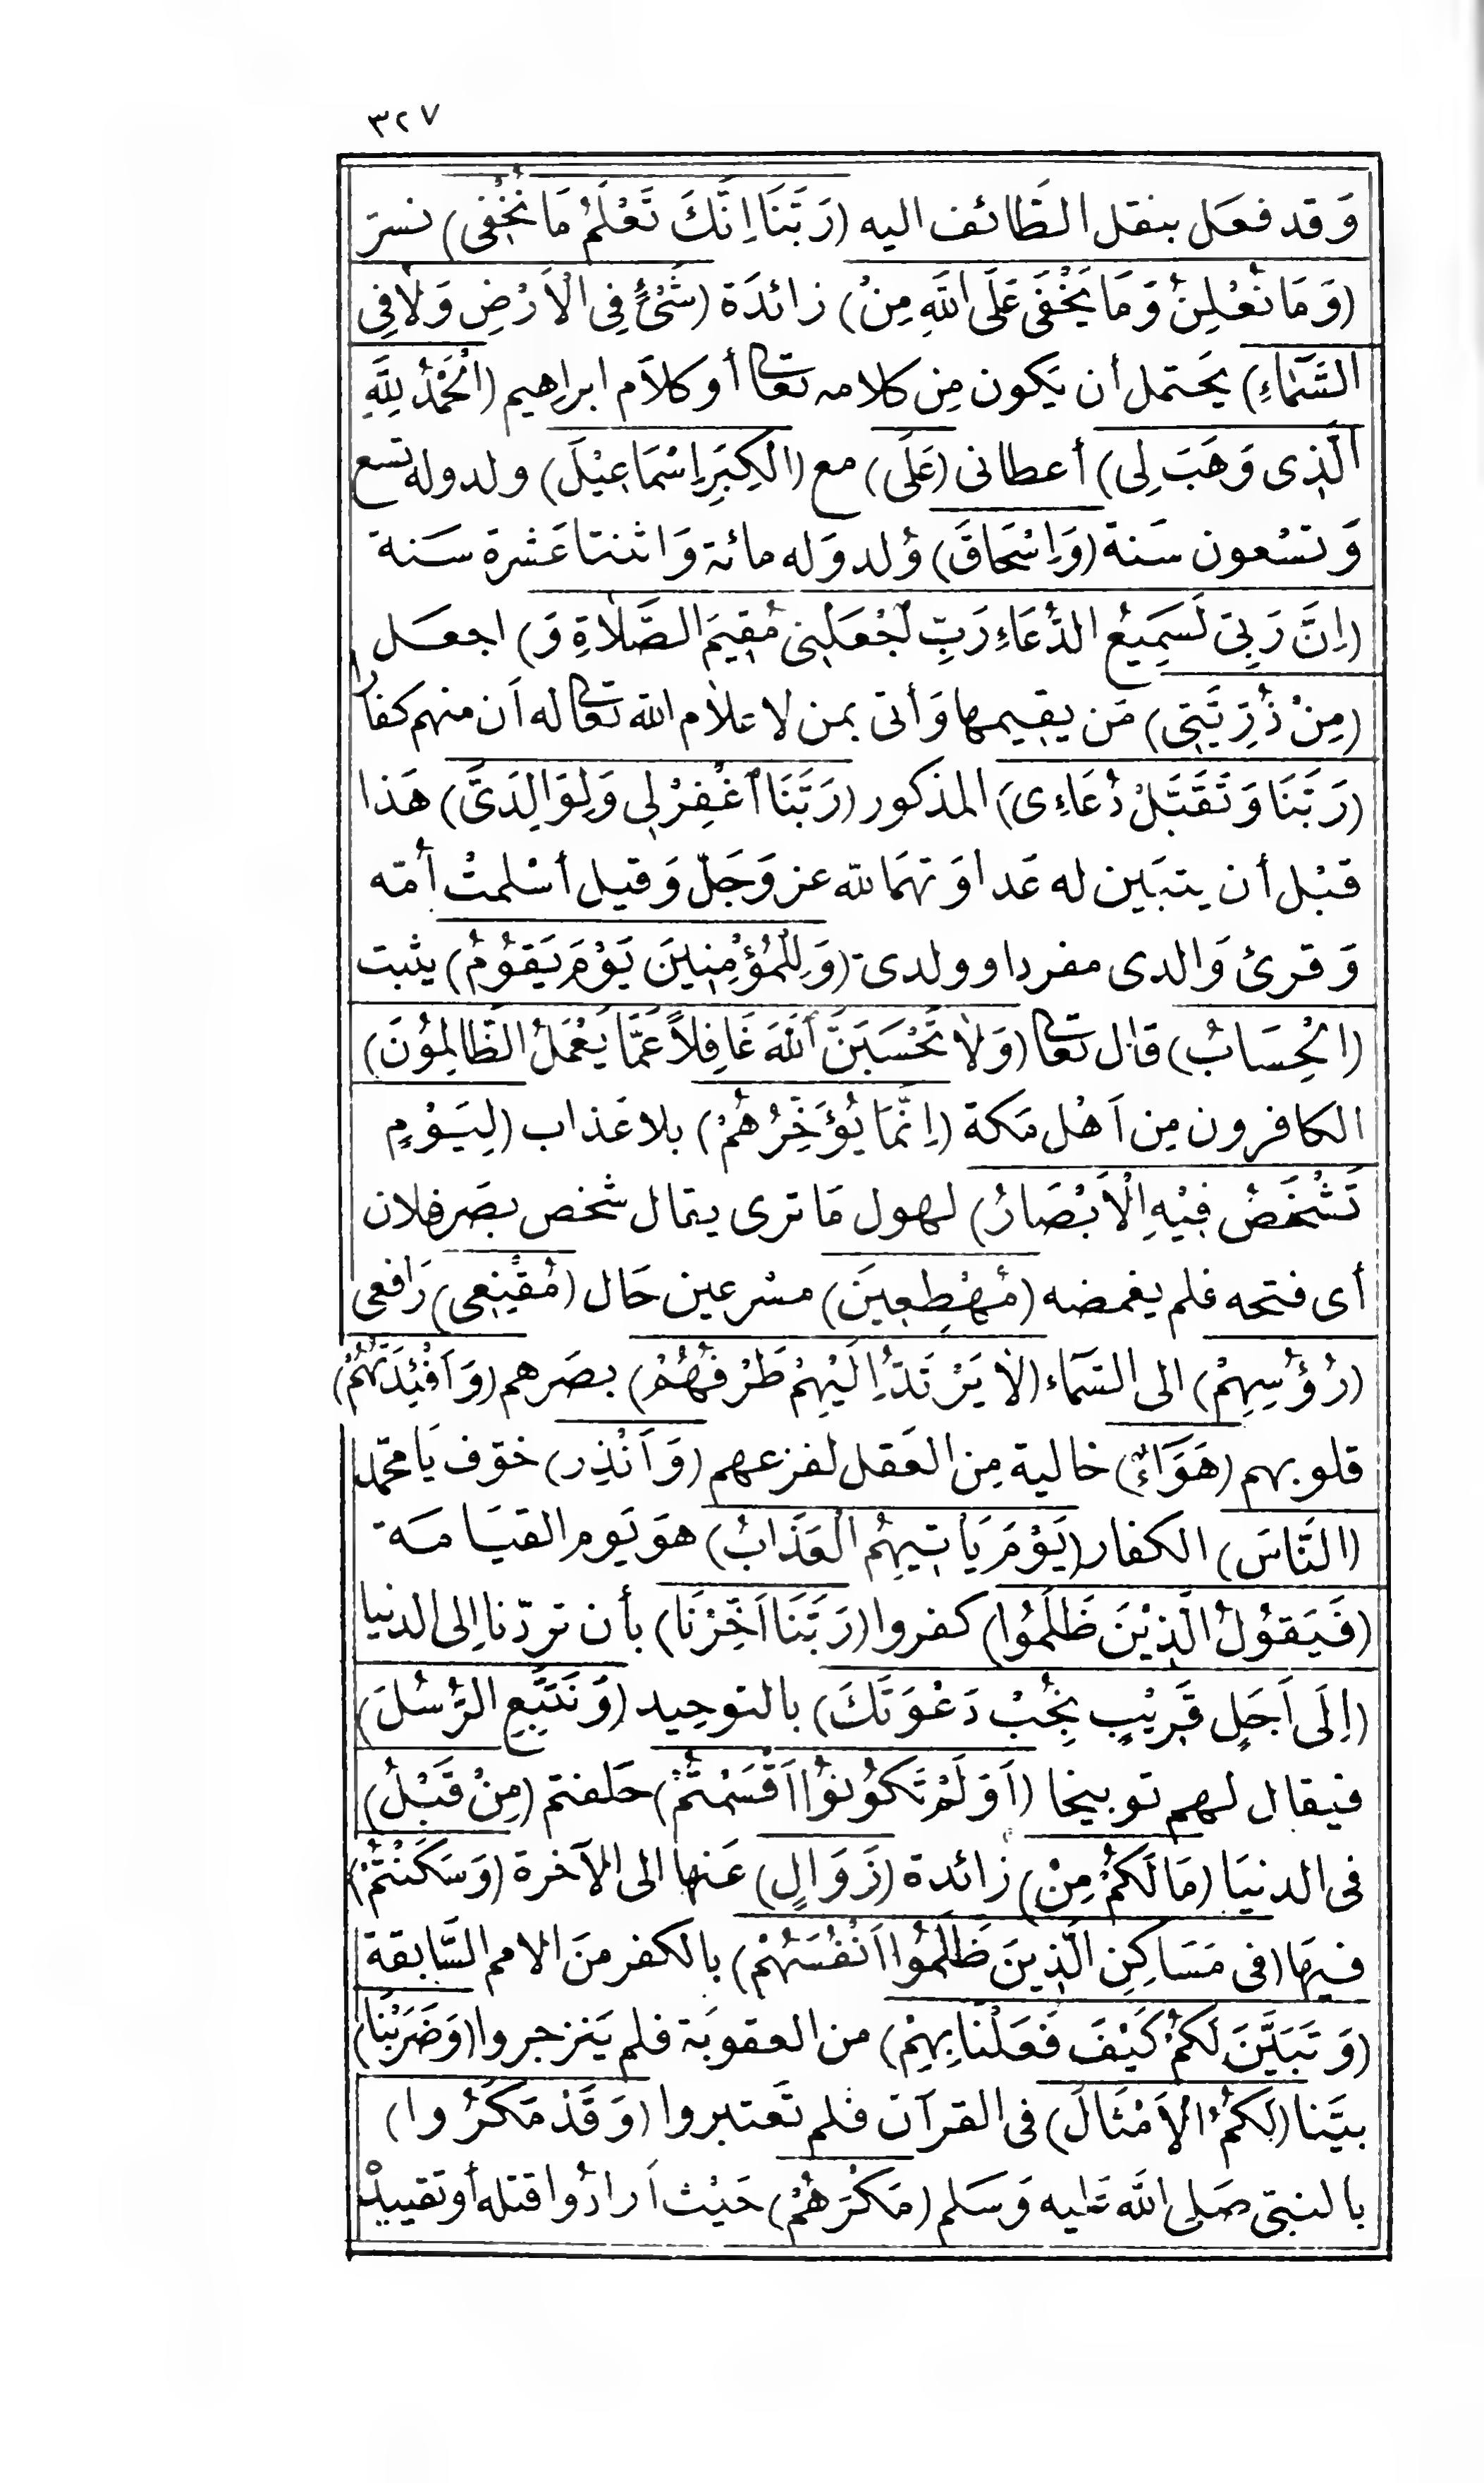 ٣٢٧
وَقد فعَل بنقل الطَّائف اليه (رَبَّنَا اِنَّكَ تَعْلَمُ مَا نُخْفِى) نسرّ
(وَمَا نُعْلِنُ وَمَا يَخْفَى عَلَى اللّٰهِ مِنْ) زائدَة (شَىْءٍ فِى الْاَرْضِ وَلَا فِى
السَّمَاءِ) يحَتمل أن يَكون مِن كلامه تعالى أو كلاَم ابراهيم (اَلْحَمْدُ لِلَّهِ
الَّذِى وَهَبَ لِى) أعطانى (عَلَى) مع (الْكِبَرِ اِسْمَاعِيْلَ) ولد وله تسع
وَتسْعون سَنة (وَاِسْحَاقَ) وُلد وَله مائة وَاثنتا عَشرة سَنة
(اِنَّ رَبِّى لَسَمِيعُ الدُّعَاءِ رَبِّ اجْعَلْنِى مُقِيمَ الصَّلَاةِ وَ) اجعَل
(مِنْ ذُرِّيَّتِى) مَن يقيمها وَأتى بمن لاعلاَم الله تعالى له اَن منهم كفارا
(رَبَّنَا وَتَقَبَّلْ دُعَاءِى) المذكور (رَبَّنَا اغْفِرْلِى وَلِوَالِدَىَّ) هَذا
قبْل أن يتبَين له عَداوَتهمَا لله عز وَجَلّ وَقيل أسْلمتْ أمّه
وَقرئ وَالدى مفردا وولدى (وَلِلْمُؤْمِنِينَ يَوْمَ يَقُوْمُ) يثبت
(الْحِسَابُ) قاَل تعالى (وَلَا تَحْسَبَنَّ اللّٰهَ غَافِلاً عَمَّا يَعْمَلُ الظَّالِمُوْنَ)
الكافرون مِن اَهْل مَكة (اِنَّمَا يُؤَخِّرُهُمْ) بلا عَذاب (لِيَوْمٍ
تَشْخَصُ فِيْهِ الْاَبْصَارُ) لهول مَا ترى يقال شخص بصَر فلان
أى فتحه فلم يغمضه (مُهْطِعِينَ) مسْرعين حَال (مُقْنِعِى) رَافعى
(رُؤُسِهِمْ) الى السَّمَاء (لَا يَرْتَدُّ اِلَيْهِمْ طَرْفُهُمْ) بصَرهم (وَاَفْئِدَتُهُمْ)
قلوبهم (هَوَاءٌ) خالية مِن العَقل لفزعهم (وَاَنْذِر) خوّف يَا محمّد
(النَّاسَ) الكفار (يَوْمَ يَاْتِيهِمُ الْعَذَابُ) هوَ يَوم القيَامَة
(فَيَقُوْلُ الَّذِيْنَ ظَلَمُوا) كفروا (رَبَّنَا اَخِّرْنَا) بأن تردّنا اِلى الدنيا
(اِلَى اَجَلٍ قَرِيْبٍ نُجِبْ دَعْوَتَكَ) بالتوحِيد (وَنَتَّبِعِ الرُّسُلَ)
فيقال لهم توبيخا (اَوَلَمْ تَكُوْنُوْا اَقْسَمْتُمْ) حَلفتم (مِنْ قَبْلُ)
فى الدنيَا (مَا لَكُمْ مِنْ) زائدة (زَوَالٍ) عَنها الى الآخرة (وَسَكَنْتُمْ)
فيهَا (فى مَسَاكِنِ الَّذِينَ ظَلَمُوا اَنْفُسَهُمْ) بالكفر منَ الامم السَّابقة
(وَتَبَيَّنَ لَكُمْ كَيْفَ فَعَلْنَا بِهِمْ) من العقوبَة فلم يَنزجروا (وَضَرَبْنَا)
بيَّنا (لَكُمُ الْاَمْثَالَ) فى القرآن فلم تَعتبروا (وَقَدْ مَكَرُوا)
بالنبىّ صَلى اللّٰه عَليه وَسَلم (مَكْرَهُمْ) حَيْث اَرادُوا قتله أو تقييده